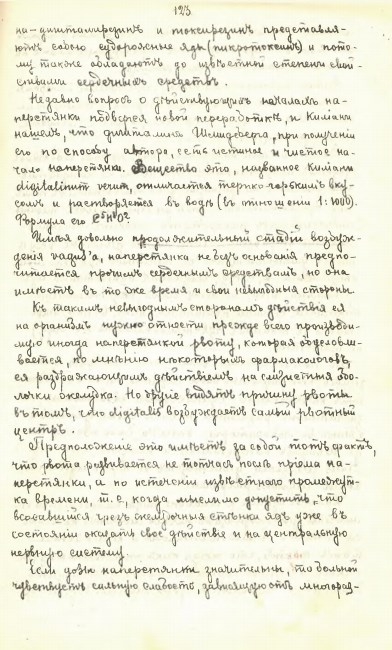 123
на-дигиталирезинъ и токсирезинъ представля-
ютъ собою судорожные яды (пикротоксинъ) и пото-
му также обладаютъ до извѣстной степени свой-
ствами сердечныхъ средствъ.
Недавно вопросъ о дѣйствующихъ началахъ на-
перстянки подвергся новой переработкѣ, и Килиани
нашелъ, что дигиталинъ Шмидеберга, при полученіи
его по способу автора, есть истинное и чистое на-
чало наперстянки. Вещество это, названное Килиани
digitalinum verum, отличается терпко-горькимъ вку-
сомъ и растворяется въ водѣ (въ отношеніи 1:1000).
Формула его
Имѣя довольно продолжительный стадій возбуж-
денія vagus'а, наперстянка не безъ основанія предпо-
читается прочимъ сердечнымъ средствамъ, но она
имѣетъ въ то же время и свои невыгодныя стороны.
Къ такимъ невыгоднымъ сторонамъ дѣйствія ея
на организмъ нужно отнести прежде всего производи-
мую иногда наперстянкой рвоту, которая обусловли-
вается, по мнѣнію нѣкоторыхъ фармакологовъ,
ея раздражающимъ дѣйствіемъ на слизистыя обо-
лочки желудка. Но другіе видятъ причину рвоты
въ томъ, что digitalis возбуждаетъ самый рвотный
центръ.
Предположеніе это имѣетъ за собой тотъ фактъ,
что рвота развивается не тотчасъ послѣ пріема на-
перстянки, а по истеченіи извѣстнаго промежут-
ка времени, т. е., когда мыслимо допустить, что
всосавшійся чрезъ желудочныя стѣнки ядъ уже въ
состояніи оказать свое дѣйствіе и на центральную
нервную систему.
Если дозы наперстянки значительны, то больной
чувствуетъ сильную слабость, зависящую отъ многораз-